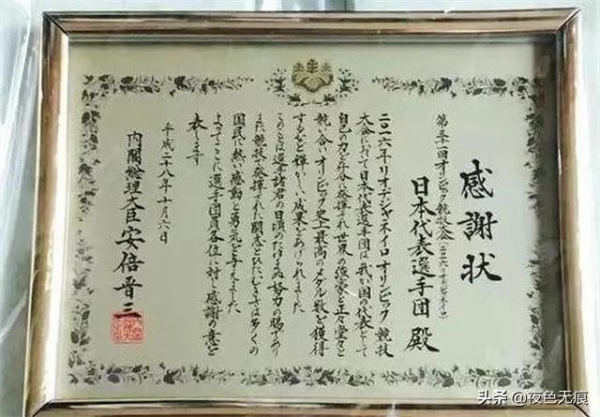 感謝状
第三十一回オリンピック競技大会(二〇一六/リオデジャネイロ)
日本代表選手団 殿
二〇一六年リオデジャネイロオリンピック競技
大会において日本代表選手団は我が国の代表として
自己の力を存分に発揮され世界の強豪と正々堂々と
競い合いオリンピック史上最高のメダル数を獲得
するなど輝かしい成果をあげられました
このことは選手諸君の日頃のたゆまぬ努力の賜であり
また競技で発揮された闘志とひたむきさは多くの
国民に熱い感動と勇気を与えました
よってここに選手団員各位に対し感謝の意を
表します
平成二十八年十月六日
内閣総理大臣 安倍晋三
头条 @夜色无痕